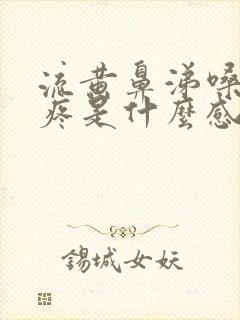 流黄鼻涕嗓
疼是什麼感
錫城女妖